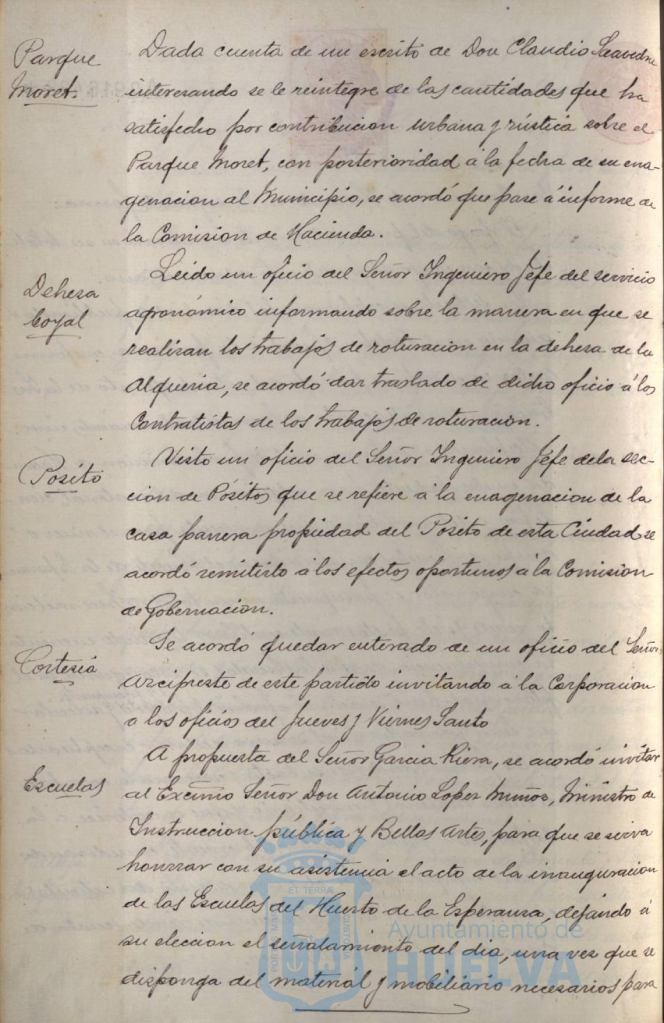 Parque
Moret.
Dada cuenta de un escrito de Don Claudio Saavedra
interesando se le reintegre de las cantidades que ha
satisfecho por contribucion urbana y rústica sobre el
Parque Moret, con posterioridad á la fecha de su ena-
genacion al Municipio, se acordó que pase á informe de
la Comision de Hacienda.
Dehesa
Boyal
Leido un oficio del Señor Ingeniero Jefe del servicio
agronómico informando sobre la manera en que se
realizan los trabajos de roturacion en la dehesa de la
Alqueria, se acordó dar traslado de dicho oficio á los
Contratistas de los trabajos de roturacion.
Posito
Visto un oficio del Señor Ingeniero Jefe de la sec-
cion de Pósitos que se refiere á la enagenacion de la
casa panera propiedad del Posito de esta Ciudad se
acordó remitirlo á los efectos oportunos á la Comision
de Gobernacion.
Cortesia
Se acordó quedar enterado de un oficio del Señor
Arcipreste de este partido invitando á la Corporacion
a los oficios del Jueves y Viernes Santo
Escuelas
A propuesta del Señor Garcia Riera, se acordó invitar
al Excmo Señor Don Antonio Lopez Muñoz, Ministro de
Instruccion pública y Bellas Artes, para que se sirva
honrrar con su asistencia el acto de la inauguracion
de las Escuelas del Huerto de la Esperanza, dejando á
su eleccion el señalamiento del dia, una vez que se
disponga del material y mobiliario necesarios para
Ayuntamiento de
HUELVA